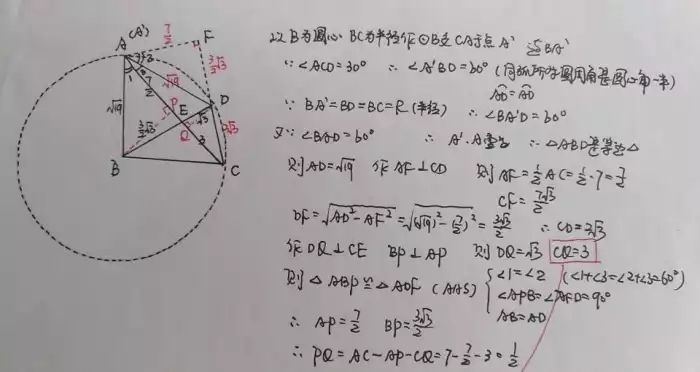 A (A')
7/2
F
3/2√3
√19
√19
7/2
1
2
3
P
E
D
√3
2√3
3/2√3
Q
3
B
C
以B为圆心 BC为半径作⊙B交CA于点A' 连BA'
∵∠ACD=30° ∴∠A'BD=60° (同弧所对圆周角是圆心角一半)
AD=AD
∵ BA'=BD=BC=R (半径) ∴∠BA'D=60°
又∵∠BAD=60° ∴ A'、A重合 ∴△ABD是等边△
则AD=√19 作AF⊥CD 则AF=1/2AC=1/2·7=7/2
CF=7√3/2
DF=√AD²-AF²=√(√19)²-(7/2)²=3√3/2 ∴CD=2√3
作DQ⊥CE BP⊥AP 则DQ=√3 CQ=3
则△ABP≌△ADF (AAS) { ∠1=∠2 (∠1+∠3=∠2+∠3=60°)
∠APB=∠AFD=90°
AB=AD
∴ AP=7/2 BP=3√3/2
∴ PQ=AC-AP-CQ=7-7/2-3=1/2